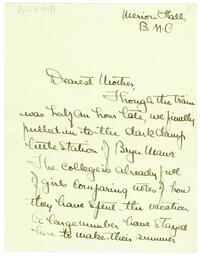 Merion Hall,
B. M. C
Dearest Mother,
Though the train
was half an hour late, we finally
pulled in to the dark damp
little station of Bryn Mawr
The college is already full
of girls comparing notes of how
they have spent the vacation
A large number have stayed
here to make their summer